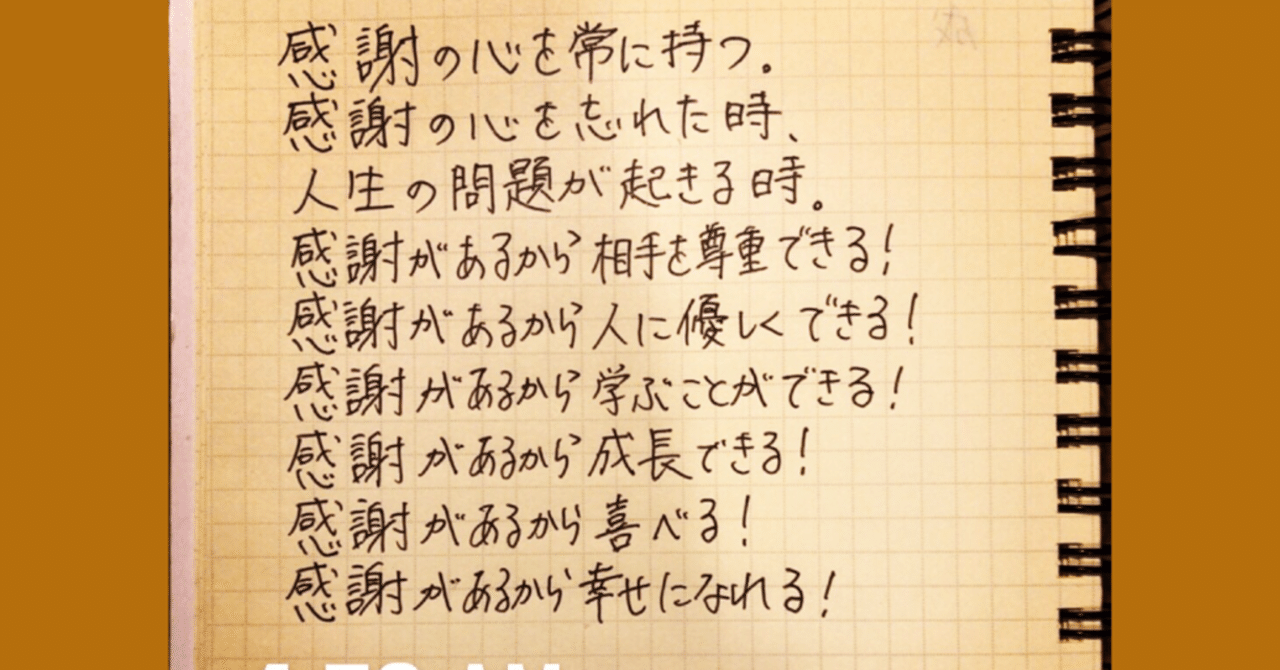 感謝の心を常に持つ。
感謝の心を忘れた時、
人生の問題が起きる時。
感謝があるから相手を尊重できる!
感謝があるから人に優しくできる!
感謝があるから学ぶことができる!
感謝があるから成長できる!
感謝があるから喜べる!
感謝があるから幸せになれる!